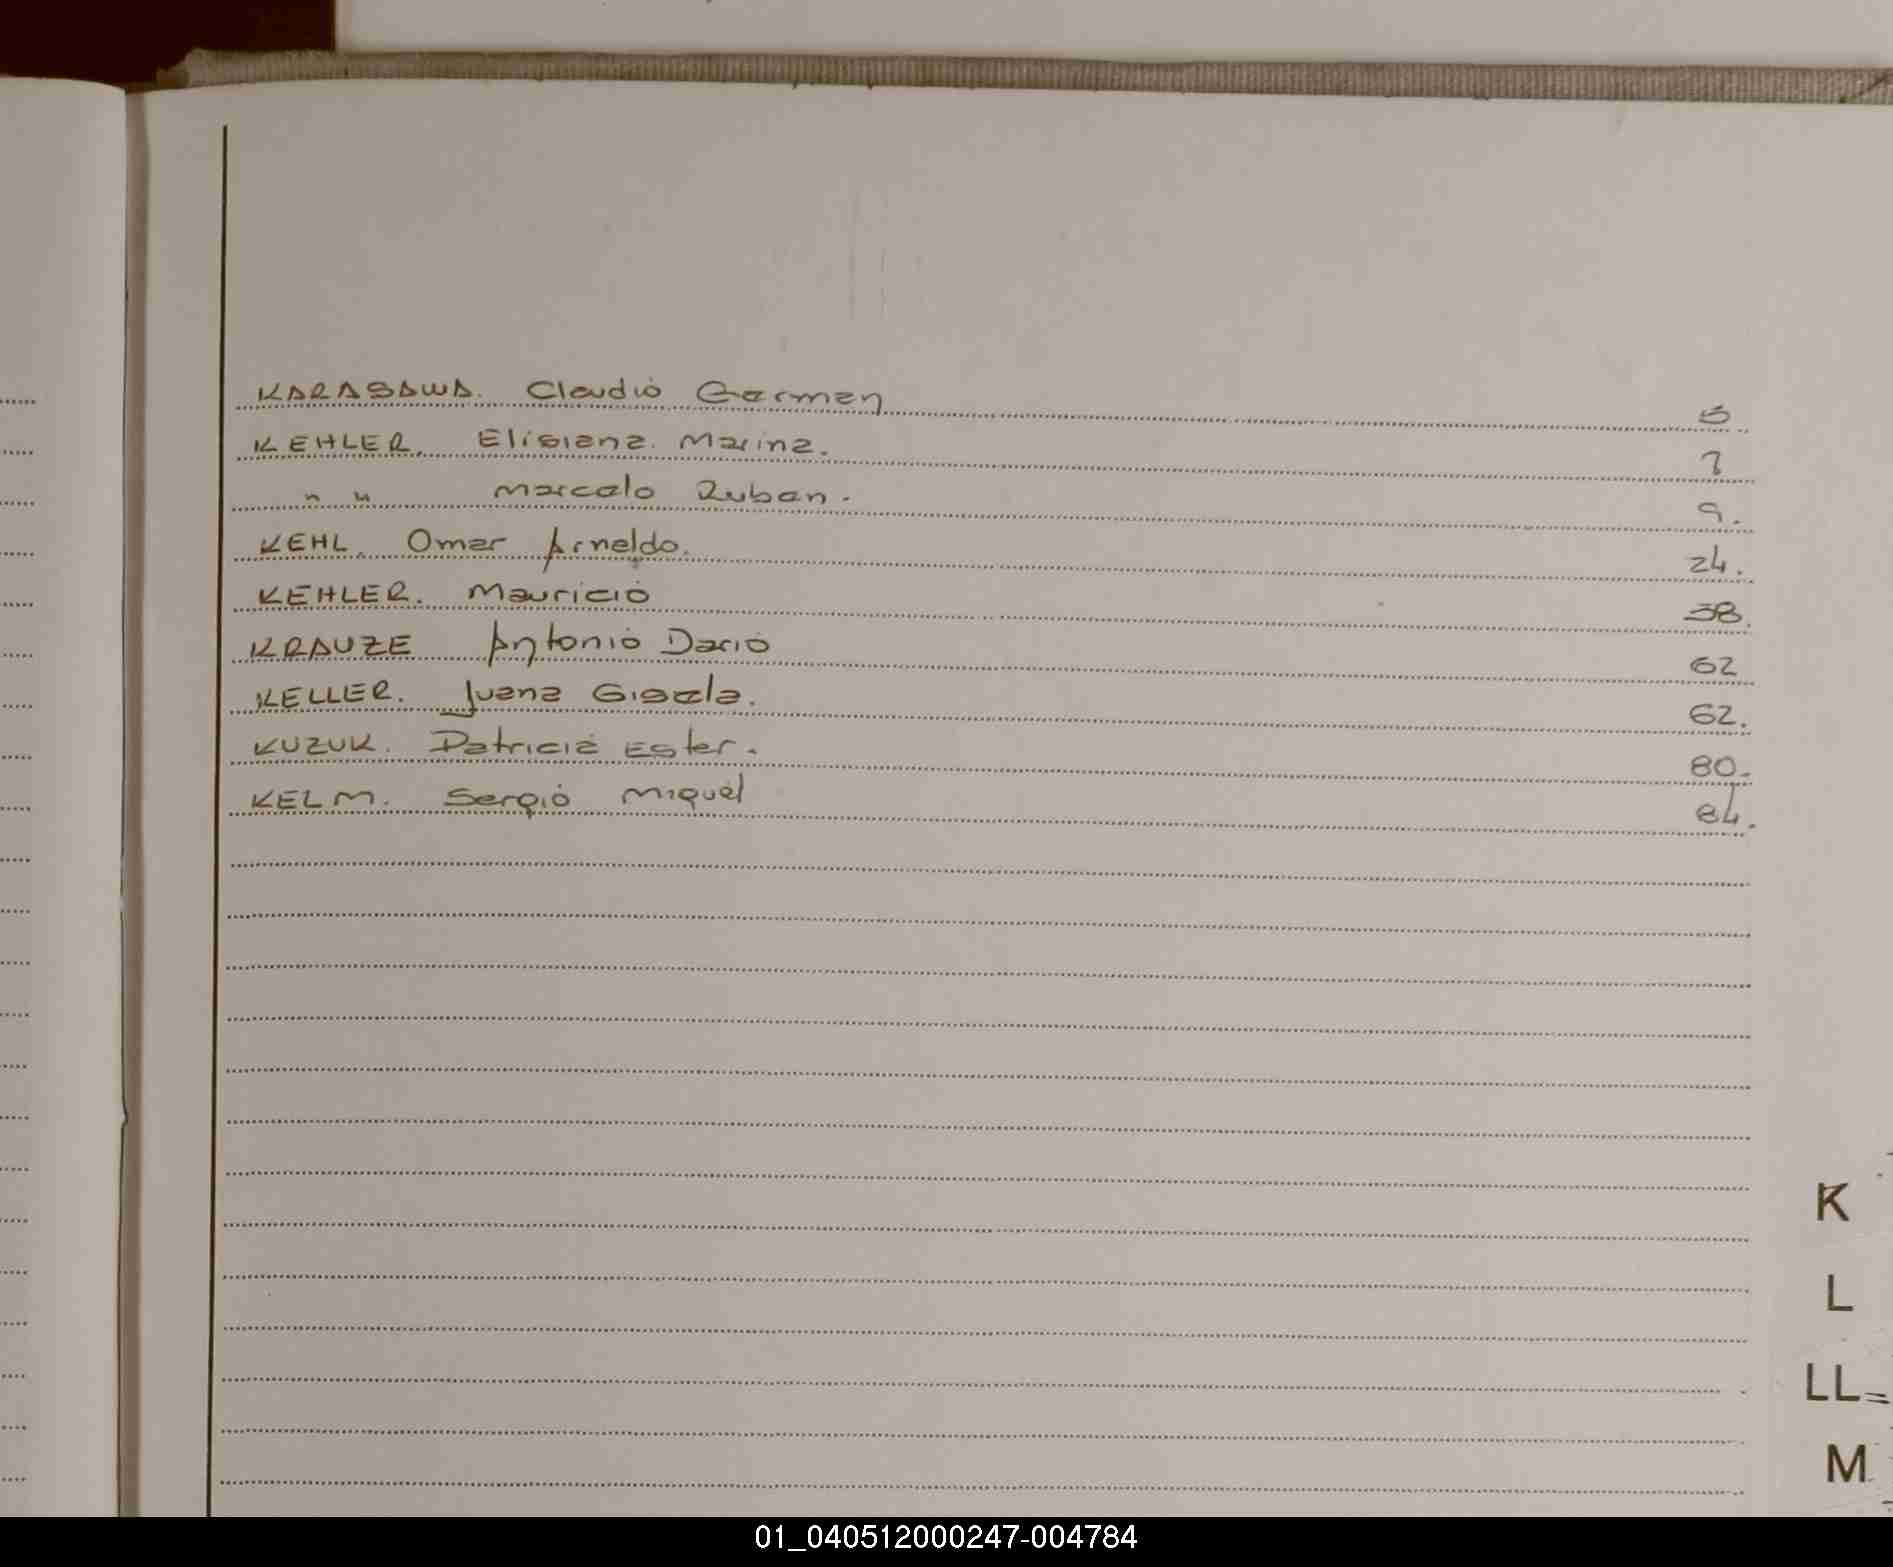 KARASAWA. Claudio German 5
KEHLER. Elisiana. Marina. 7
" " Marcelo Ruben. 9.
KEHL. Omar Arnaldo. 24.
KEHLER. Mauricio 38.
KRAUZE Antonio Dario 62
KELLER. Juana Gisela. 62.
KUZUK. Patricia Ester. 80.
KELM. Sergio Miguel 84.
K
L
LL
M
01_040512000247-004784